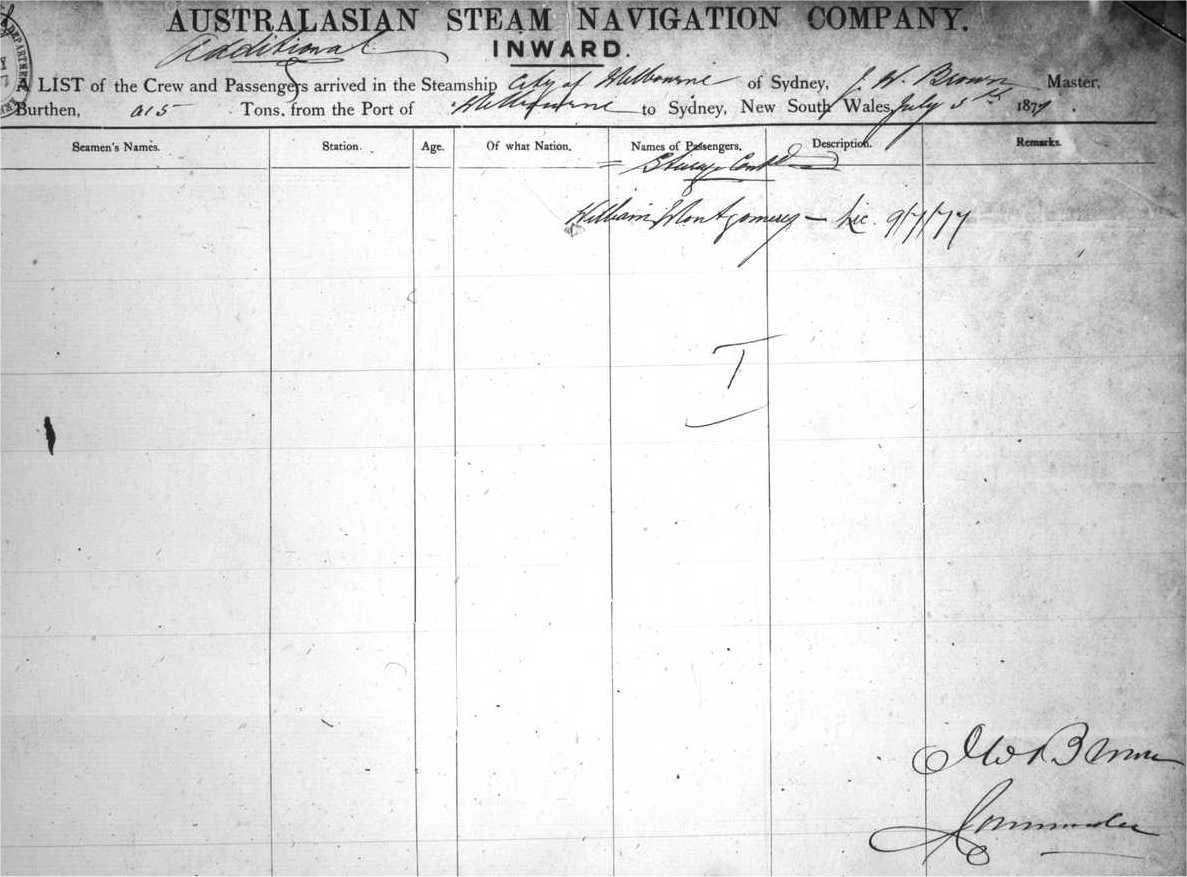 AUSTRALASIAN STEAM NAVIGATION COMPANY.
Additional
INWARD.
A LIST of the Crew and Passengers arrived in the Steamship City of Melbourne of Sydney, J. W. Brown Master,
Burthen, 615 Tons, from the Port of Melbourne to Sydney, New South Wales, July 5th 1877.
Seamen's Names. Station. Age. Of what Nation. Names of Passengers. Description. Remarks.
William Montgomery — 9/7/77
J W Brown
Commander